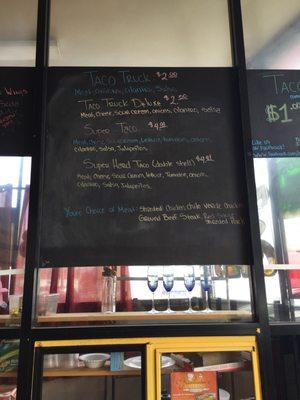 Wings
TACO TRUCK $2.00
Meat, onions, cilantro, Salsa
TACO TRUCK Deluxe $2.50
Meat, Cheese, sour cream, onions, cilantro, salsa
Super Taco
Meat, Cheese, Sour cream, lettuce, tomatoes, onions
cilantro, Salsa, Jalapeños
Super Hard Taco (double shell)
Meat, Cheese, Sour Cream, lettuce, Tomatoe, onions,
cilantro, Salsa, Jalapeños.
Youre Choice of Meat: Shredded Chicken, Chile Verde Chicken
Ground Beef, Steak,
Shredded Pork
TACO
$1
Like Us
on Facebook!